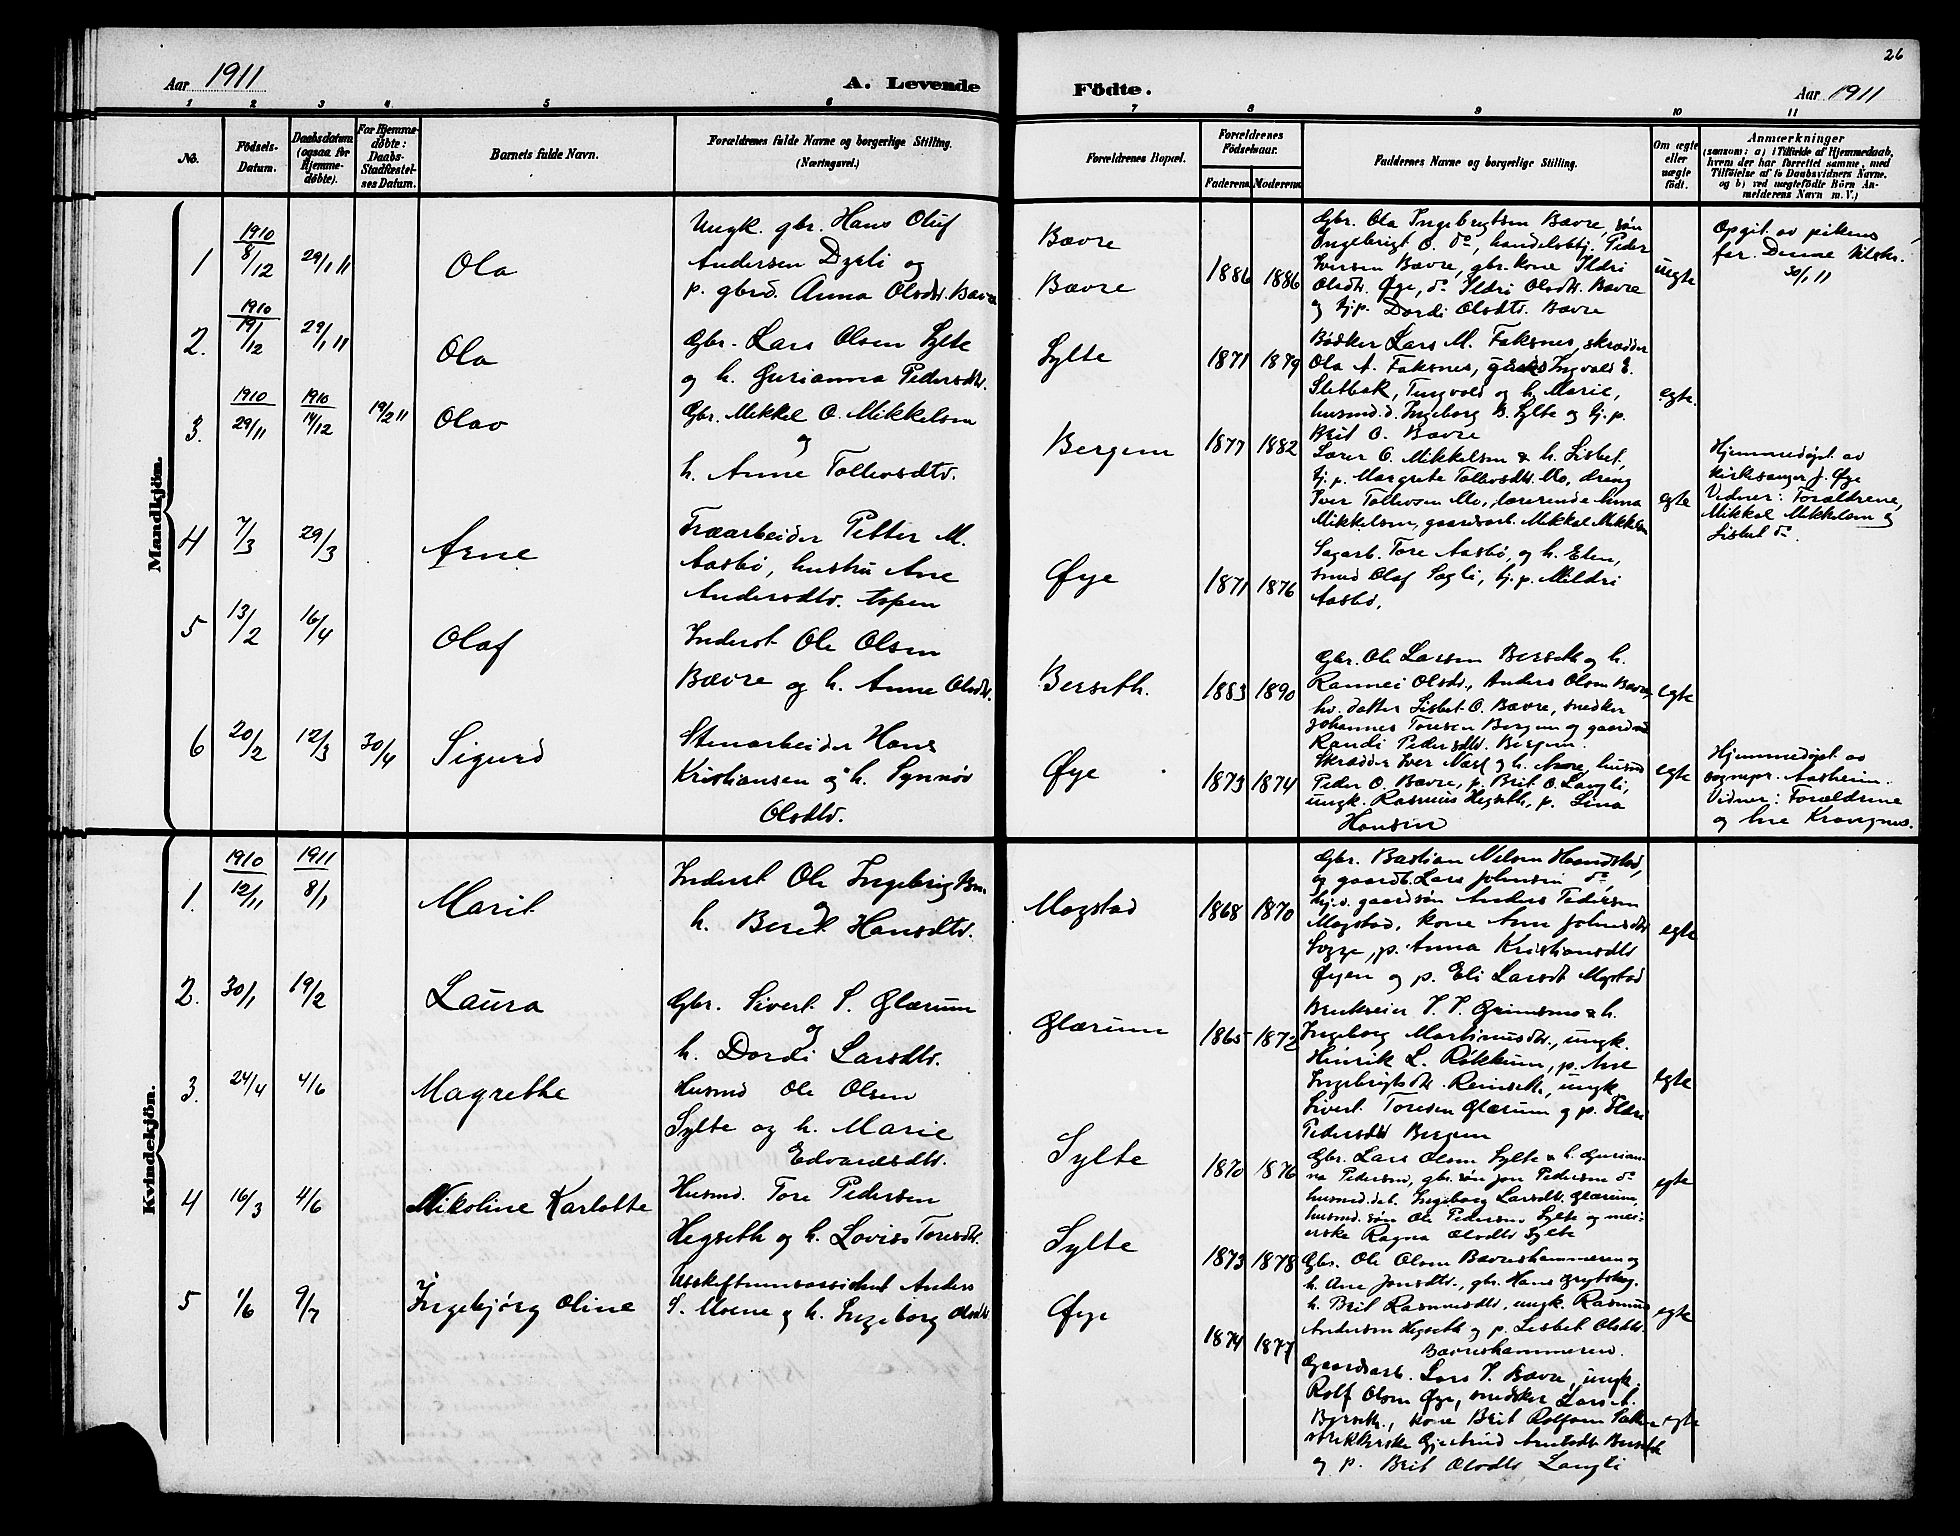 26
Aar 1911
A. Levende Födte.
Aar 1911
1 2 3 4 5 6 7 8 9 10 11
No.
Födsels-
Datum.
Daabsdatum
(ogsaa for
Hjemme-
döbte).
For Hjemme-
döbte:
Daabs-
Stadfæstel-
ses Datum.
Barnets fulde Navn.
Forældrenes fulde Navne og borgerlige Stilling.
(Næringsvei.)
Forældrenes Bopæl.
Forældrenes
Födselsaar.
Faderens. Moderens.
Faddernes Navne og borgerlige Stilling.
Om ægte
eller
uægte
födt.
Anmærkninger
(saasom: a) i Tilfælde af Hjemmedaab,
hvem der har forrettet samme, med
Tilföielse af to Daabsvidners Navne,
og b) ved uægtefödte Börn An-
melderens Navn m. V.)
Mandkjön.
1
1910
8/12
29/1 11
Ola
Ungk. gbr. Hans Oluf
Andersen Dyrli og
p. gbrd. Anna Olsdtr. Bævre
Bævre
Bævre
1886 1886
Gbr. Ola Ingebrigtsen Bævre, søn
Ingebrigt O. do, handelsbtj. Peder
Iversen Bævre, gbr. kone Ildri
Olsdtr. Øye, do Ildri Olsdtr. Bævre
og tj.p. Dordi Olsdtr. Bævre
uegte
Opgit av pikens
far. Denne tilskr.
30/1 11
2.
1910
19/12
29/1 11
Ola
Gbr. Lars Olsen Sylte
og h. Gurianna Pedersdtr.
Sylte
1871 1879
Bødker Lars M. Faksnes, skrædder
Ola A. Faksnes, Ingvald E.
Sletbak, Tungvold og h. Marie,
husmd.d. Ingeborg B. Sylte og tj.p.
Brit O. Bævre
egte.
3.
1910
29/11
1910
14/12
19/2 11
Olav
Gbr. Mikkel O. Mikkelsen
og
h. Anne Tollevsdtr.
Bergem
1877 1882
Lærer O. Mikkelsen & h. Lisbet,
tj.p. Margrete Tollevsdtr. Mo, dreng
Iver Tollevsen Mo, lærerinde Anna
Mikkelsen, gaardsarb. Mikkel Mikkelsen
egte
Hjemmedøpt av
kirkesanger J. Øye
Vidner: Forældrene,
Mikkel Mikkelsen og
Lisbet do.
4
7/3
29/3
Arne
Træarbeider Petter M.
Aasbø, hustru Ane
Andersdtr. Aspen
Øye
1871 1876
Sagarb. Tore Aasbø, og h. Elen,
smed Olaf Sogli, tj.p. Mildri
Aasbø.
5
13/2
16/4
Olaf
Inderst Ole Olsen
Bævre og h. Anne Olsdtr.
Berseth.
1883 1890
Gbr. Ole Larsen Berseth og h.
Rannei Olsdtr., Anders Olsen Bævre,
hv. datter Lisbet O. Bævre, snedker
Johannes Toresen Bergem og gaardmd
Randi Pedersdtr. Bergem.
egte
6
20/2
12/3
30/4
Sigurd
Stenarbeider Hans
Kristiansen og h. Synnøv
Olsdtr.
Øye
1873 1874
Skrædder Iver Næss og h. Anne, husmd
Peder O. Bævre, p. Brit O. Langli,
ungk. Rasmus Hegseth, p. Lina
Hansen
egte
Hjemmedøpt av
sognepr. Aasheim.
Vidner: Forældrene
og Ane Krangnes.
Kvindekjön.
1.
1910
12/11
1911
8/1
Marit
Inderst Ole Ingebrigtsen
og
h. Beret Hansdtr.
Mogstad
1868 1870
Gbr. Bastian Nilsen Haandstad,
og gaardb. Lars Johnsen do,
tj.d. gaardsøn Anders Pedersen
Mogstad, kone Ann Johnsdtr.
Sogge, p. Anna Kristiansdtr
Øyen og p. Eli Larsdt Mogstad
egte
2.
30/1
19/2
Laura
Gbr. Sivert S. Glærum
og
h. Dordi Larsdtr.
Glærum
1865 1872
Brukseier T. T. Grimsmo & h.
Ingeborg Martinusdtr., ungk.
Hinrik L. Røkkum, p. Ane
Ingebrigtsdtr. Romseth, ungk
Sivert Toresen Glærum og p. Ildri
Pedersdtr Bergem
egte
3.
24/4
4/6
Magrethe
Husmd Ole Olsen
Sylte og h. Marie
Edvardsdtr.
Sylte
1870 1876
Gbr. Lars Olsen Sylte & h. Gurian-
na Pedersen, gbr. søn Jon Pedersen do
husmd.dat. Ingeborg Larsdtr. Glærum,
husmd. søn Ole Pedersen Sylte og mei-
erske Ragna Olsdtr Sylte
egte
4
16/3
4/6
Nikoline Karlotte
Husmd. Tore Pedersen
Hegseth og h. Lovise Toresdtr.
Sylte
1873 1878
Gbr. Ole Olsen Bævreshammeren og
h. Ane Jonsdtr., gbr. Hans Grytskog
h. Brit Rasmusdtr, ungk. Rasmus
Andersen Hegseth og p. Lisbet Olsdtr.
Bævreshammeren.
egte
5
1/6
9/7
Ingebjørg Oline
Utskiftningsassistent Anders
S. Moene og h. Ingeborg Olsdtr
Øye
1874 1877
Gaardsarb. Lars T. Bævre, ungk.
Rolf Olsen Øye, snedker Lars A.
Berseth., kone Brit Rolfsen
strikkerske Gjertrud Arntsdt Berseth
og p. Brit Olsdtr Langli
egte